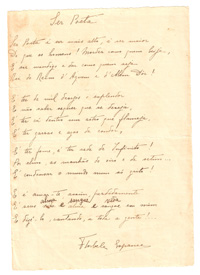 Ser Poeta
Ser Poeta é ser mais alto, é ser maior
Do que os homens! Morder como quem beija,
É ser mendigo e dar como quem seja
Rei do Reino d'Aquem e d'Além Dor!
É ter de mil desejos o esplendor
E não saber sequer que se deseja,
É ter cá dentro um astro que flameja,
É ter garras e asas de condor,
É ter fome, é ter sede de Infinito!
Por elmo, as manhãs de oiro e de setim
É condensar o mundo num só grito!
E é amar-te assim perdidamente
alma sangue vida
É seres e em mim
E dizê-lo, cantando, a toda a gente!
Florbela Espanca